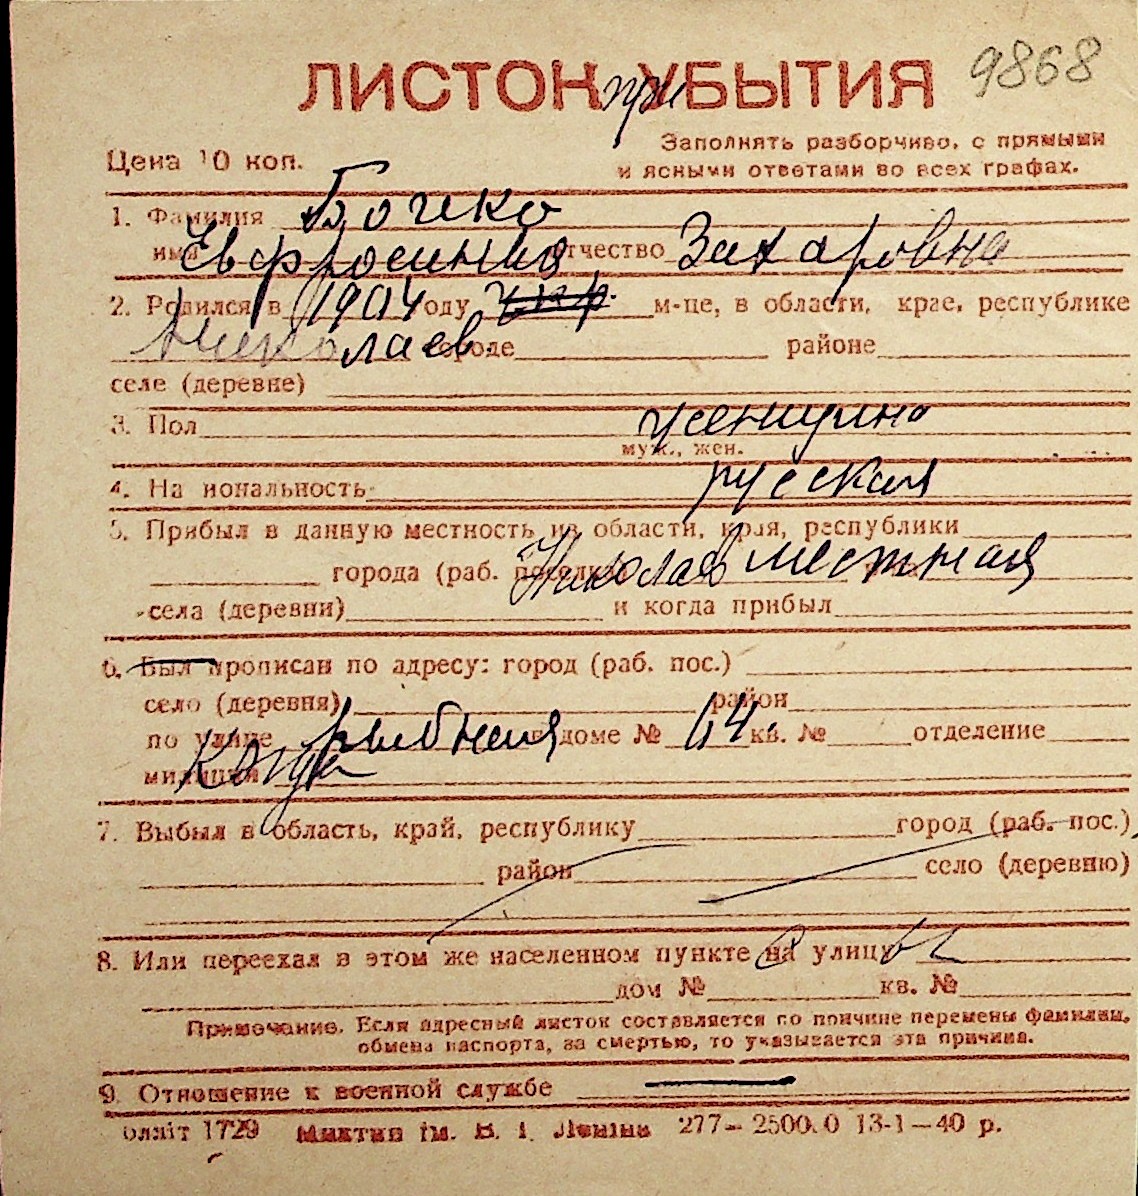 ЛИСТОК при УБЫТИЯ 9868
Цена 10 коп.
Заполнять разборчиво, с прямыми
и ясными ответами во всех графах.
1. Фамилия Бочко
имя Евфросиния отчество Захаровна
2. Родился в 1904 году м-це, в области, крае, республике
Николаев городе районе
селе (деревне)
3. Пол женщина
муж., жен.
4. На иональность русская
5. Прибыл в данную местность из области, края, республики
города (раб. поселка Николаев местная
села (деревни) и когда прибыл
6. Был прописан по адресу: город (раб. пос.)
село (деревня) район
по улице Рыбная в доме № 64 кв. № отделение
милиции
7. Выбыл в область, край, республику город (раб. пос.)
район село (деревню)
8. Или переехал в этом же населенном пункте на улицу
дом № кв. №
Примечание. Если адресный листок составляется по причине перемены фамилии,
обмена паспорта, за смертью, то указывается эта причина.
9. Отношение к военной службе
олліт 1729 Миктип ім. В. І. Леніна 277–2500.0 13-1–40 р.